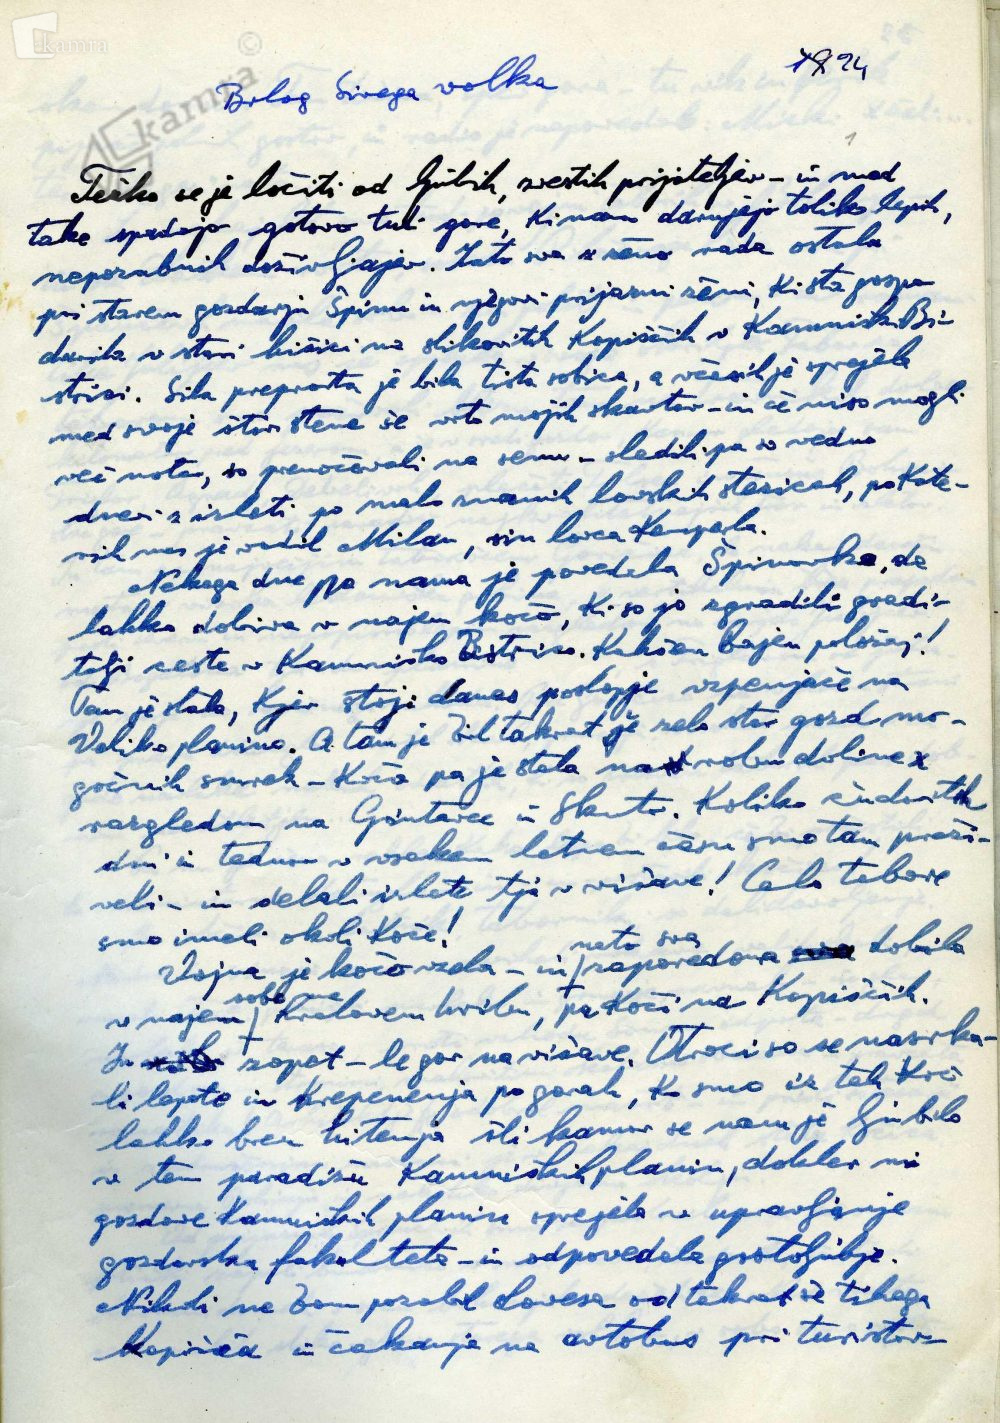 kamra
©
kamra
1X94
Brlog Sivega volka
1
Težko se je ločiti od ljubih, zvestih prijateljev – in med
take spadajo gotovo tudi gore, ki nam darujejo toliko lepih,
nepozabnih doživljajev. Zato sva z ženo rada ostala
pri starem gozdarju Špinu in njegovi prijazni ženi, ki sta gospo
darila v stari hišici na slikovitih Kopiščih v Kamniški Bi-
strici. Sila preprosta je bila tista sobica, a včasih je sprejela
med svoje štiri stene še vrsto mojih skavtov – in če niso mogli
več noter, so prenočevali na senu – sledili pa so vedno
dnevi z izleti po malo znanih lovskih stezicah, po kate-
rih nas je vodil Milan, sin lovca Kemperla.
Nekega dne pa nama je povedala Špinovka, da
lahko dobiva v najem kočo, ki so jo zgradili gradi-
telji ceste v Kamniško Bistrico. Kakšen bajen položaj!
Tam je stala, kjer stoji danes poslopje vzpenjače na
Veliko planino. A tam je bil takrat še zelo star gozd mo-
gočnih smrek – koča pa je stala na robu doline z
razgledom na Grintavec in Skuto. Koliko čudovitih
dni in tednov v vsakem letnem času smo tam preži-
veli – in delali izlete tja v višave! Cele tabore
smo imeli okoli koče!
Vojna je kočo vzela – in nato sva zaporedoma dobila
v najem sobe na Kraljevem hribu, pa koči na Kopiščih.
In zopet – le gor na višave. Otroci so se nasrka-
li lepote in krepčenja po gorah, ko smo iz teh koč
lahko brez hitenja šli kamor se nam je ljubilo
v tem paradižu Kamniških planin, dokler ni
gozdove Kamniških planin sprejela v upravljanje
gozdarska fakulteta – in odpovedala gostoljubje.
Nikoli ne bom pozabil slovesa od takrat še tihega
Kopišča in čakanje na avtobus pri turistov-